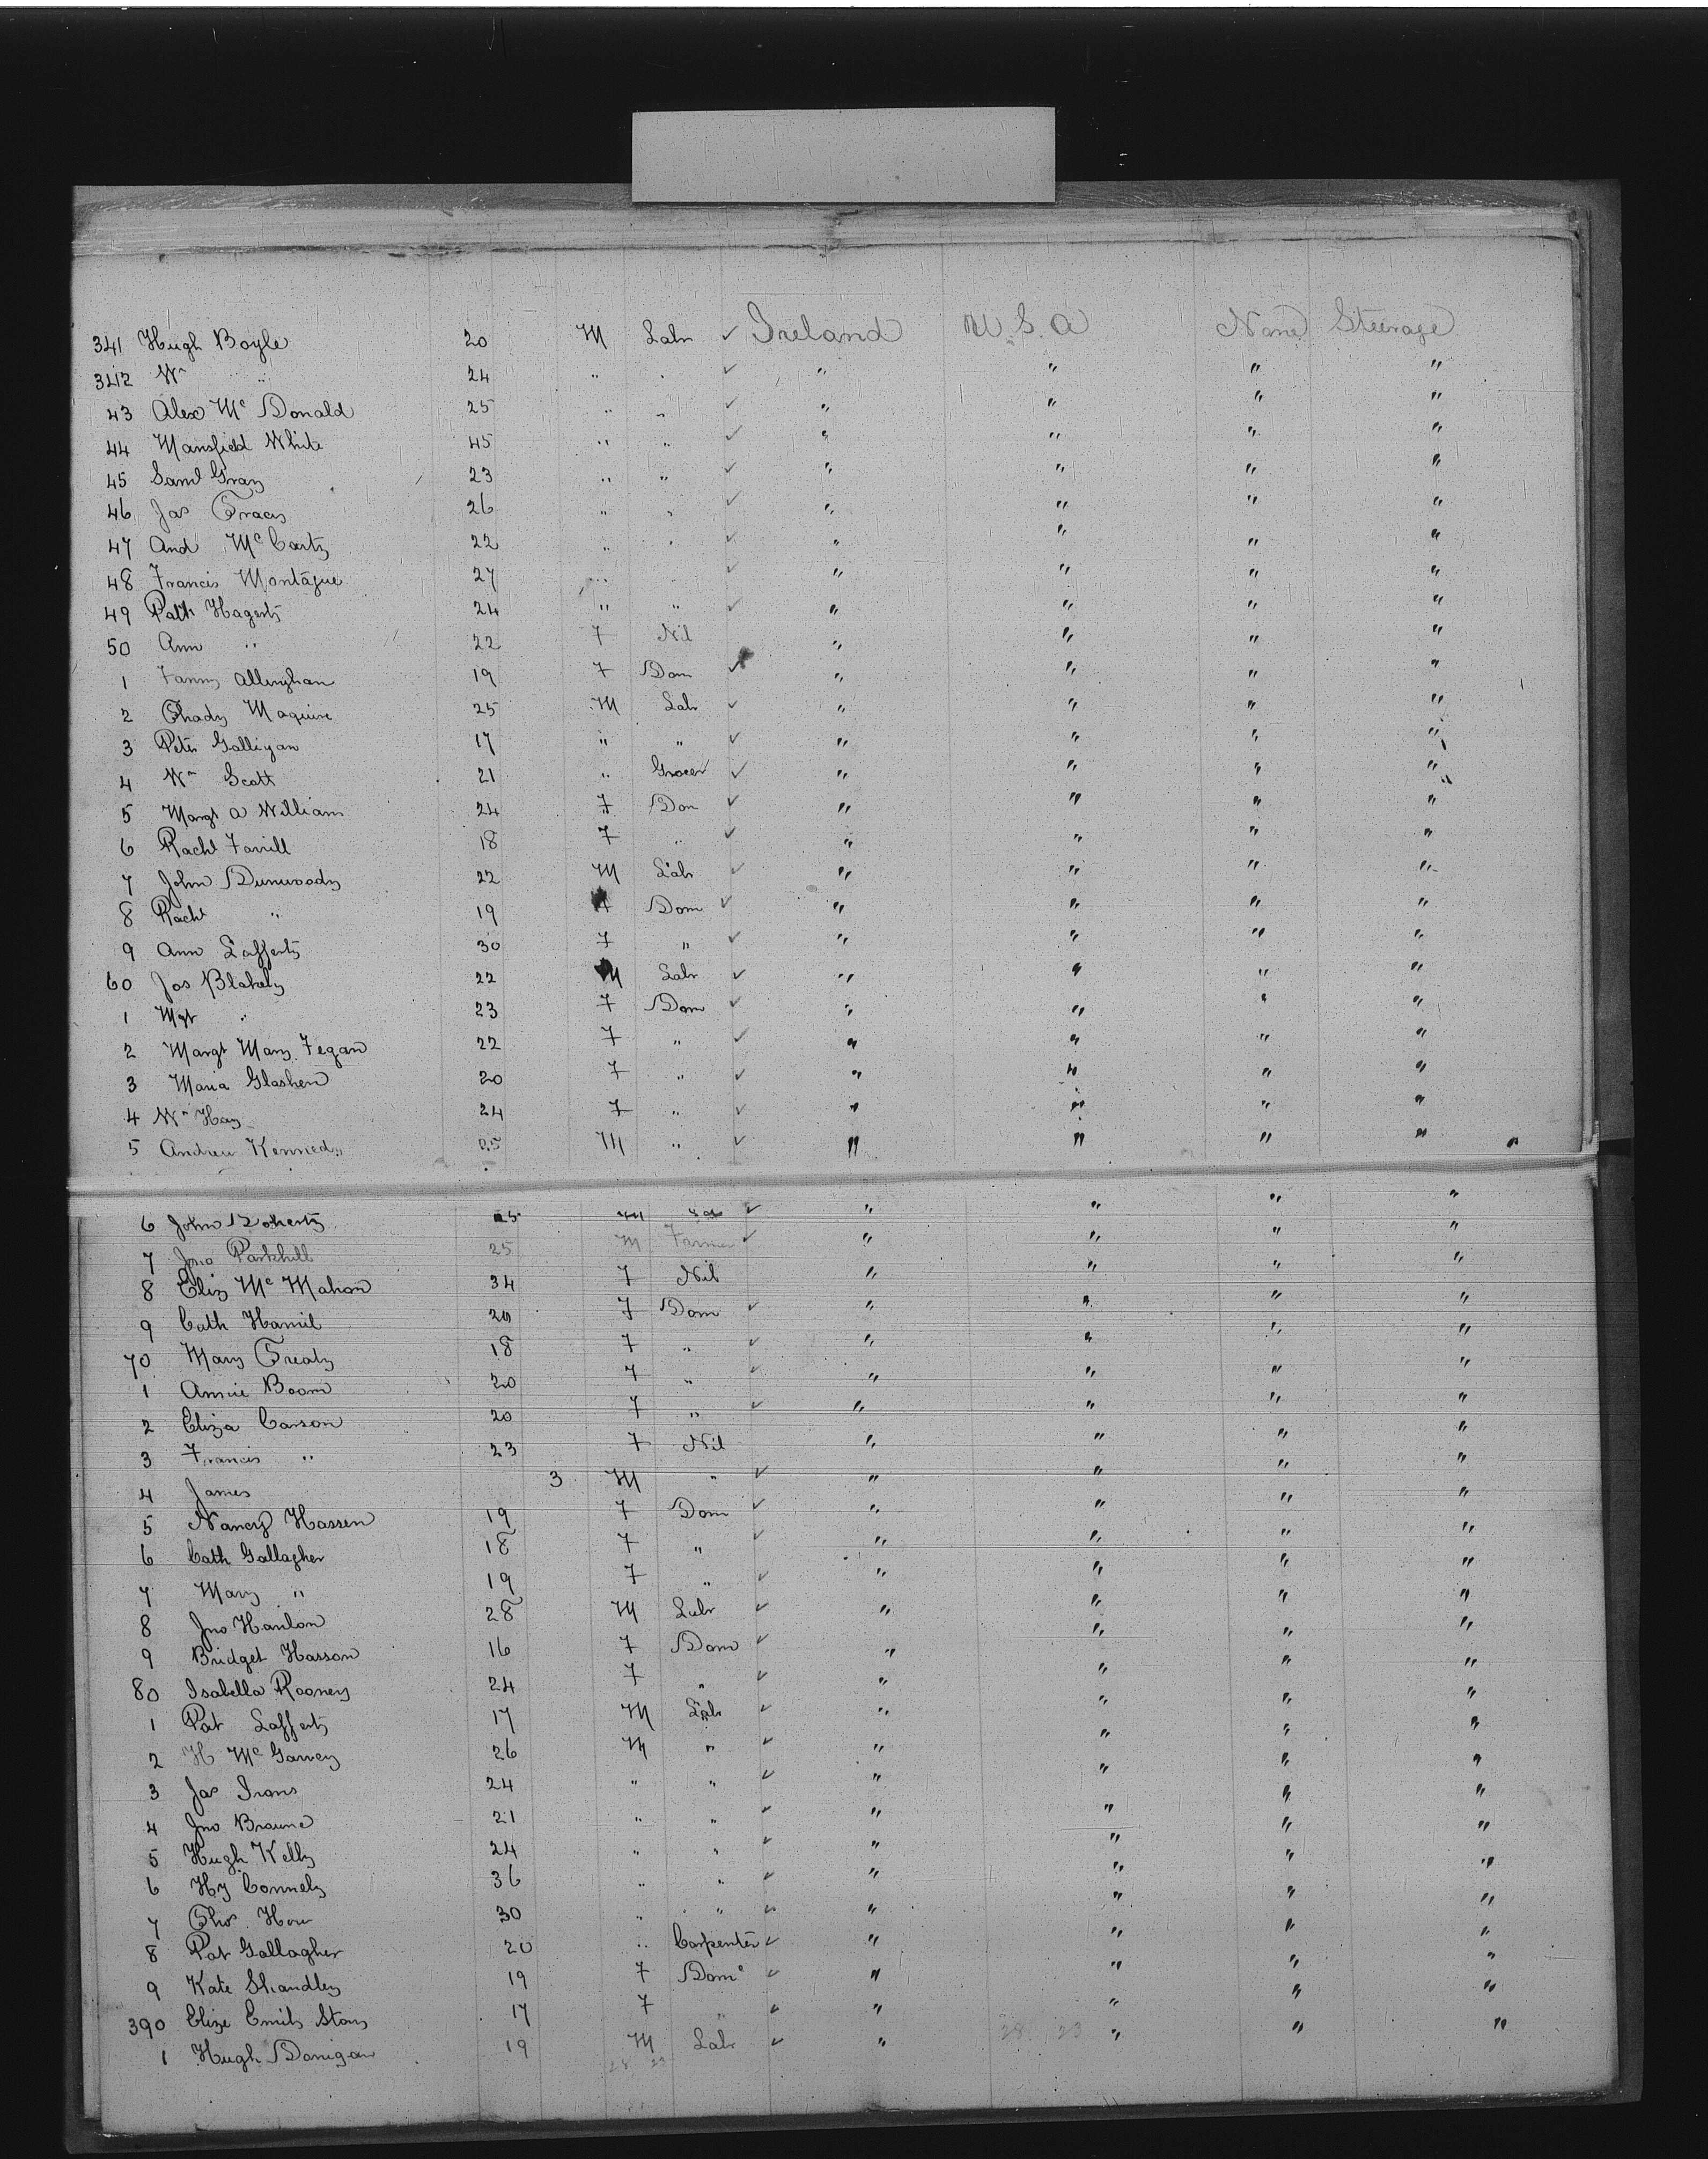 341 Hugh Boyle 20 M Labr ✓ Ireland U.S.A None Steerage
342 Wm " 24 " " ✓ " " " "
43 Alex Mc Donald 25 " " ✓ " " " "
44 Mansfield White 45 " " ✓ " " " "
45 Saml Gray 23 " " ✓ " " " "
46 Jas Tracey 26 " " ✓ " " " "
47 And McCarty 22 " " ✓ " " " "
48 Francis Montague 27 " " ✓ " " " "
49 Patk Hagerty 24 " " ✓ " " " "
50 Ann " 22 F Nil " " " "
1 Fanny Allinghan 19 F Dom ✓ " " " "
2 Thady Maguire 25 M Labr ✓ " " " "
3 Peter Galligan 17 " " ✓ " " " "
4 Wm Scott 21 " Grocer ✓ " " " "
5 Margt A William 24 F Dom ✓ " " " "
6 Rachl 18 F " ✓ " " " "
7 John Dunwoody 22 M Labr ✓ " " " "
8 Rachl " 19 F Dom ✓ " " " "
9 Ann Lafferty 30 F " ✓ " " " "
60 Jos Blakely 22 M Labr ✓ " " " "
1 Mgt " 23 F Dom ✓ " " " "
2 Margt Mary Fegan 22 F " ✓ " " " "
3 Maria Glashen 20 F " ✓ " " " "
4 Wm Hay 24 F " ✓ " " " "
5 Andrew Kennedy 25 M " ✓ " " " " "
6 John Doherty 25 M ✓ " " " "
7 Jno Parkhill 25 M Farmer ✓ " " " "
8 Eliz Mc Mahon 34 F Nil " " " "
9 Cath Hamil 20 F Dom ✓ " " " "
70 Mary Treaty 18 F " ✓ " " " "
1 Annie Boom 20 F " ✓ " " " "
2 Eliza Carson 20 F " ✓ " " " "
3 Francis " 23 F Nil " " " "
4 James 3 M " ✓ " " " "
5 Nancy Hassen 19 F Dom ✓ " " " "
6 Cath Gallagher 18 F " ✓ " " " "
7 Mary " 19 F " ✓ " " " "
8 Jno Hanlon 28 M Labr ✓ " " " "
9 Bridget Hasson 16 F Dom ✓ " " " "
80 Isabella Rooney 24 F " ✓ " " " "
1 Pat Lafferty 17 M Labr ✓ " " " "
2 H McGarvey 26 M " ✓ " " " "
3 Jas Irons 24 " " ✓ " " " "
4 Jno Browne 21 " " ✓ " " " "
5 Hugh Kelly 24 " " ✓ " " " "
6 Hy Connely 36 " " ✓ " " " "
7 Thos How 30 " " ✓ " " " "
8 Pat Gallagher 20 " Carpenter ✓ " " " "
9 Kate Shandley 19 F Dome ✓ " " " "
390 Elize Emily Story 17 F " ✓ " " " "
1 Hugh Donigan 19 M Labr ✓ " 28 23 " " "
28 23